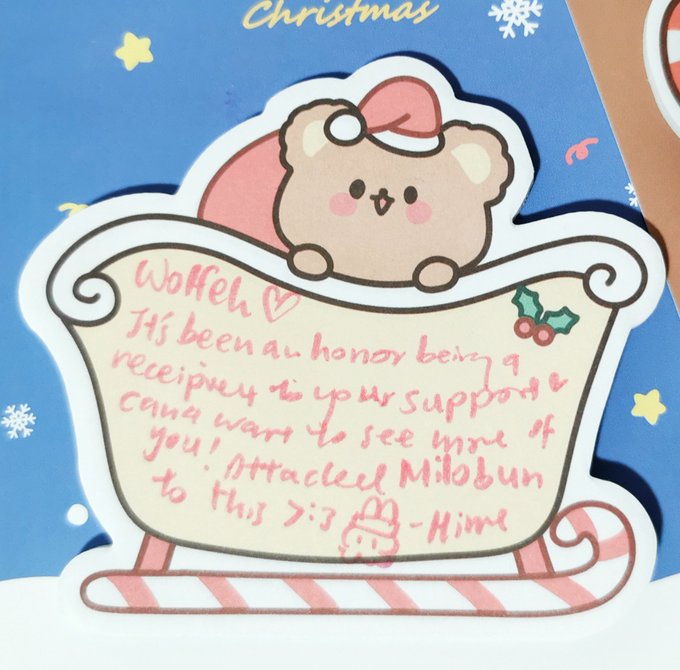 Christmas
Wolfeh ♡
It's been an honor being a
receipient to your support ♥
cana want to see more of
you! Attacked Milobun
to this >:3 -Hime